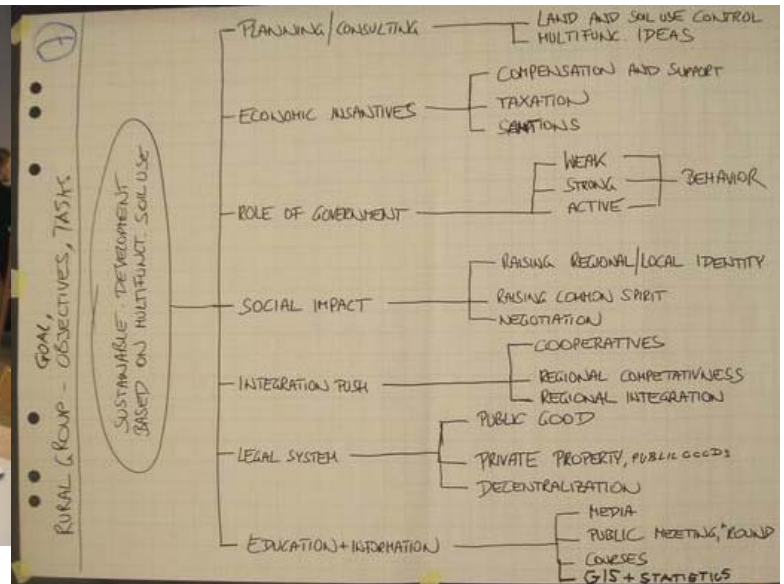 7
GOAL,
RURAL GROUP - OBJECTIVES, TASKS
SUSTAINABLE DEVELOPMENT
BASED ON MULTIFUNCT. SOIL USE
PLANNING/CONSULTING
LAND AND SOIL USE CONTROL
MULTIFUNC. IDEAS
ECONOMIC INSANTIVES
COMPENSATION AND SUPPORT
TAXATION
SANTIONS
ROLE OF GOVERNMENT
WEAK
STRONG
ACTIVE
BEHAVIOR
SOCIAL IMPACT
RAISING REGIONAL/LOCAL IDENTITY
RAISING COMMON SPIRIT
NEGOTIATION
INTEGRATION PUSH
COOPERATIVES
REGIONAL COMPETATIVNESS
REGIONAL INTEGRATION
LEGAL SYSTEM
PUBLIC GOOD
PRIVATE PROPERTY, PUBLIC GOODS
DECENTRALIZATION
EDUCATION + INFORMATION
MEDIA
PUBLIC MEETING, "ROUND
COURSES
GIS + STATISTICS